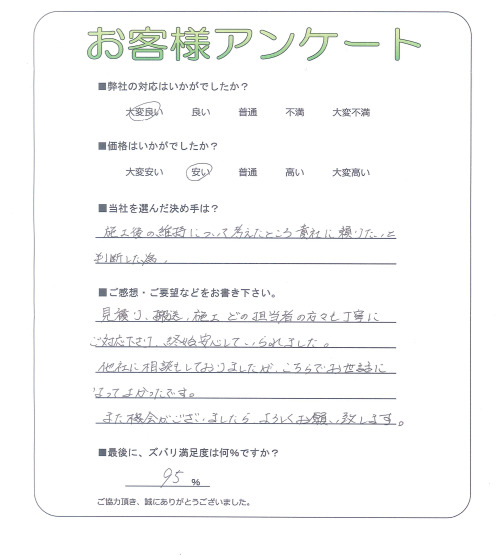 お客様アンケート
■弊社の対応はいかがでしたか？
大変良い 良い 普通 不満 大変不満
■価格はいかがでしたか？
大変安い 安い 普通 高い 大変高い
■当社を選んだ決め手は？
施工後の維持について考えたところ貴社に頼りたいと
判断した為。
■ご感想・ご要望などをお書き下さい。
見積り、搬送、施工どの担当者の方々も丁寧に
ご対応下さり、終始安心していられました。
他社に相談もしておりましたが、こちらでお世話に
なってよかったです。
また機会がございましたらよろしくお願い致します。
■最後に、ズバリ満足度は何%ですか？
95 %
ご協力頂き、誠にありがとうございました。